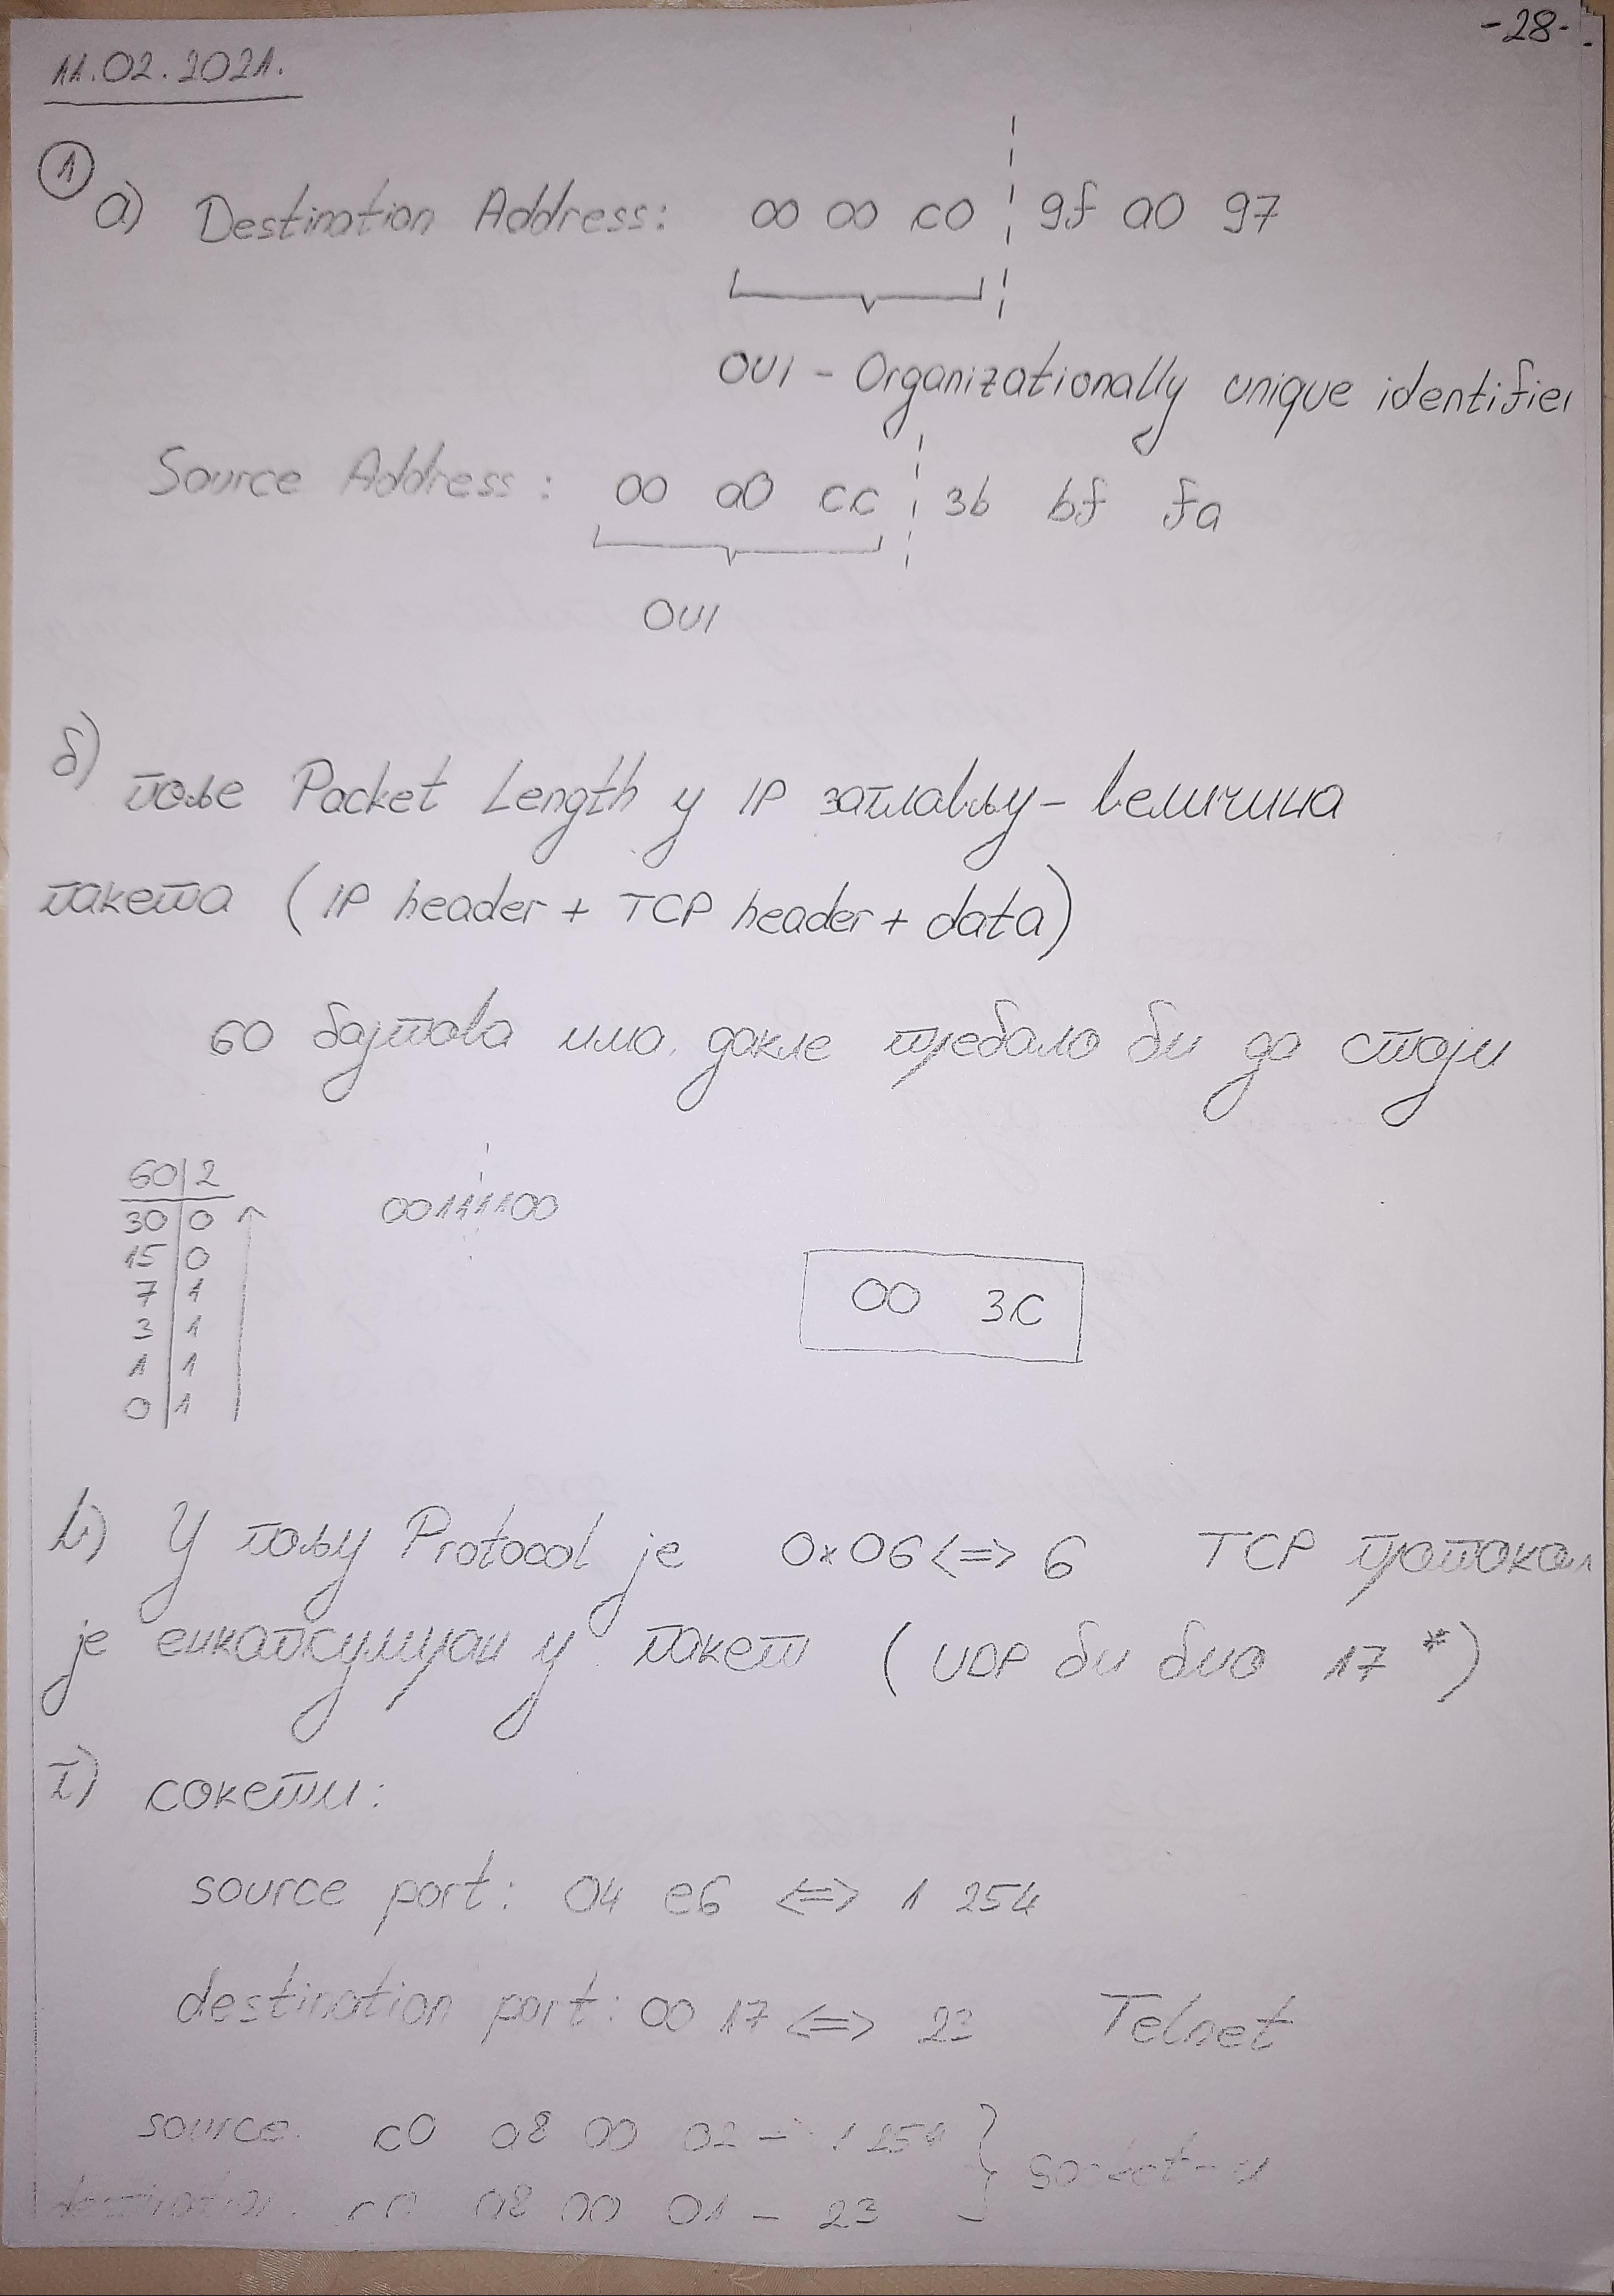 -28-
11.02.2021.
1
а) Destination Address: 00 00 c0 9f a0 97
OUI - Organizationally unique identifier
Source Address: 00 a0 cc 3b bf fa
OUI
б)
поље Packet Length у IP заглављу - величина
пакета (IP header + TCP header + data)
60 бајтова има. дакле требало би да стоји
60 2
30 0
15 0
7 1
3 1
1 1
0 1
00111100
00 3C
в) У пољу Protocol је 0x06 <=> 6 TCP протокол
је енкапсулиран у пакет (UDP би био 17*)
г) сокети:
source port: 04 e6 <=> 1 254
destination port: 00 17 <=> 23 Telnet
source: c0 a8 00 02 - 1 254
destination: c0 a8 00 01 - 23
socket-и